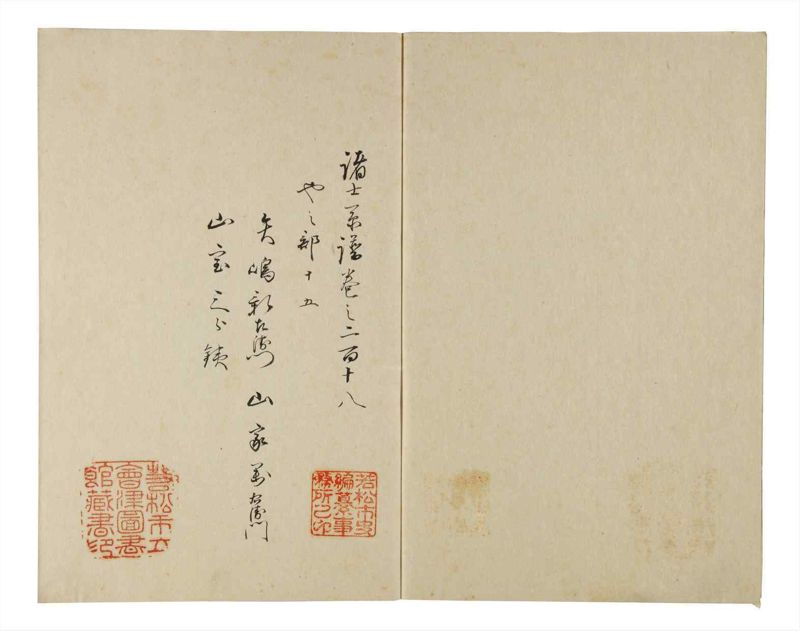 諸士系譜巻之二百十八
や之部十五
矢嶋新左衛門 山家
山室
若松市史
編纂事
務所之印
若松市立
會津圖書
館藏書印